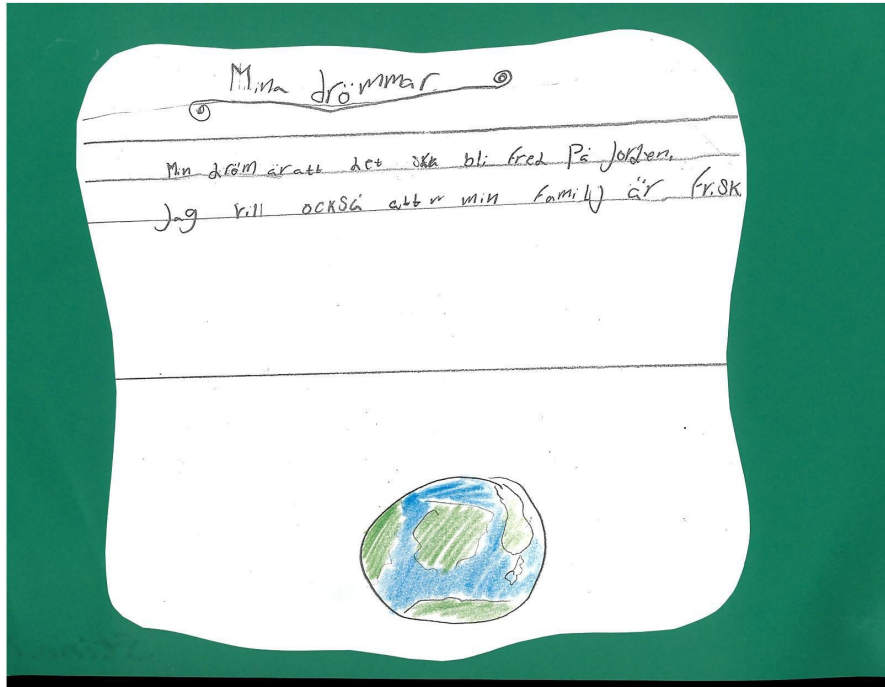 Mina drömmar
Min dröm är att det ska bli fred på Jorden.
Jag vill också att min familj är frisk